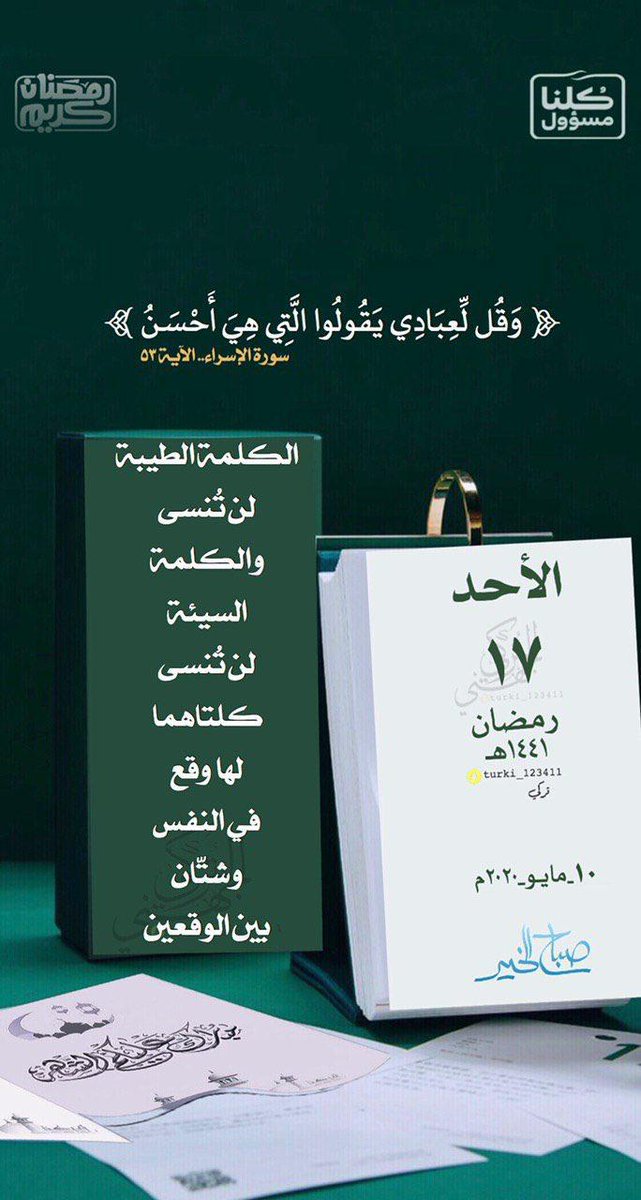 رمضان
كريم
كُلنا
مسؤول
﴿ وَقُل لِّعِبَادِي يَقُولُوا الَّتِي هِيَ أَحْسَنُ ﴾
سورة الإسراء.. الآية ٥٣
الكلمة الطيبة
لن تُنسى
والكلمة
السيئة
لن تُنسى
كلتاهما
لها وقع
في النفس
وشتّان
بين الوقعين
الأحد
١٧
turki_123411
رمضان
١٤٤١هـ
turki_123411
تركي
١٠_مايو_٢٠٢٠م
صباح الخير
مبارك عليكم الشهر